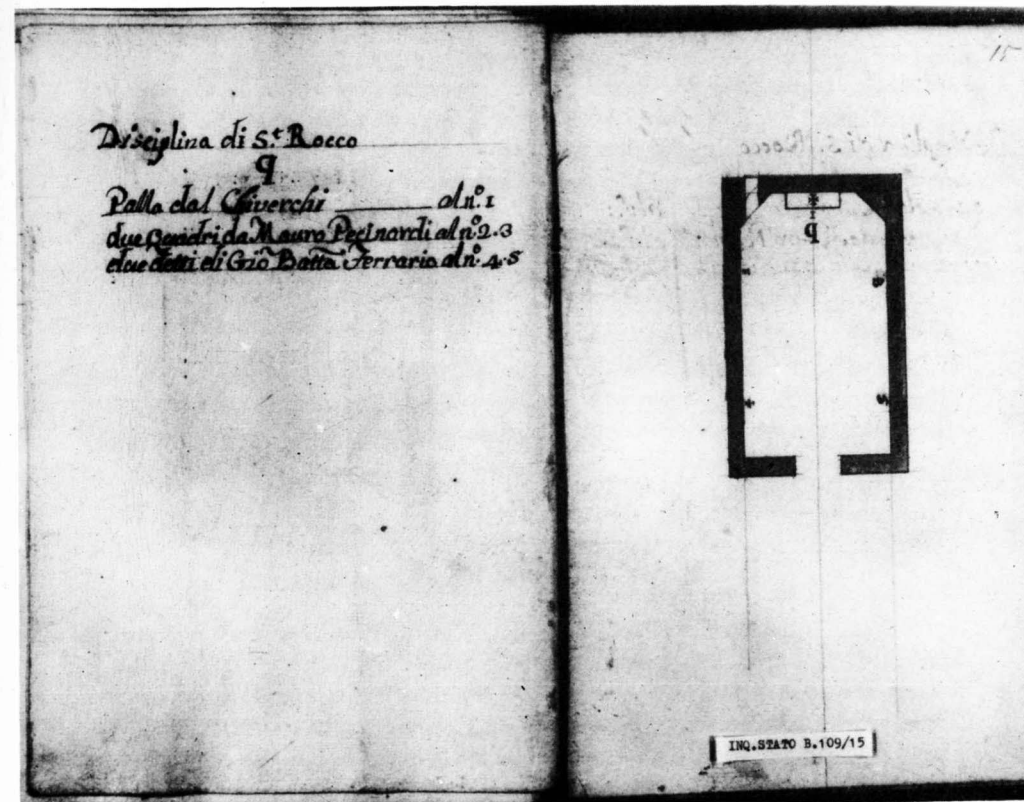 Disciplina di S.t Rocco
q
Palla dal Civerchi al n.º 1
due Quadri da Mauro Pecinardi al nº 2.3
due detti di Gio Batta Ferrario al n.º 4.5
15
1
q
2
3
4
5
INQ.STATO B.109/15